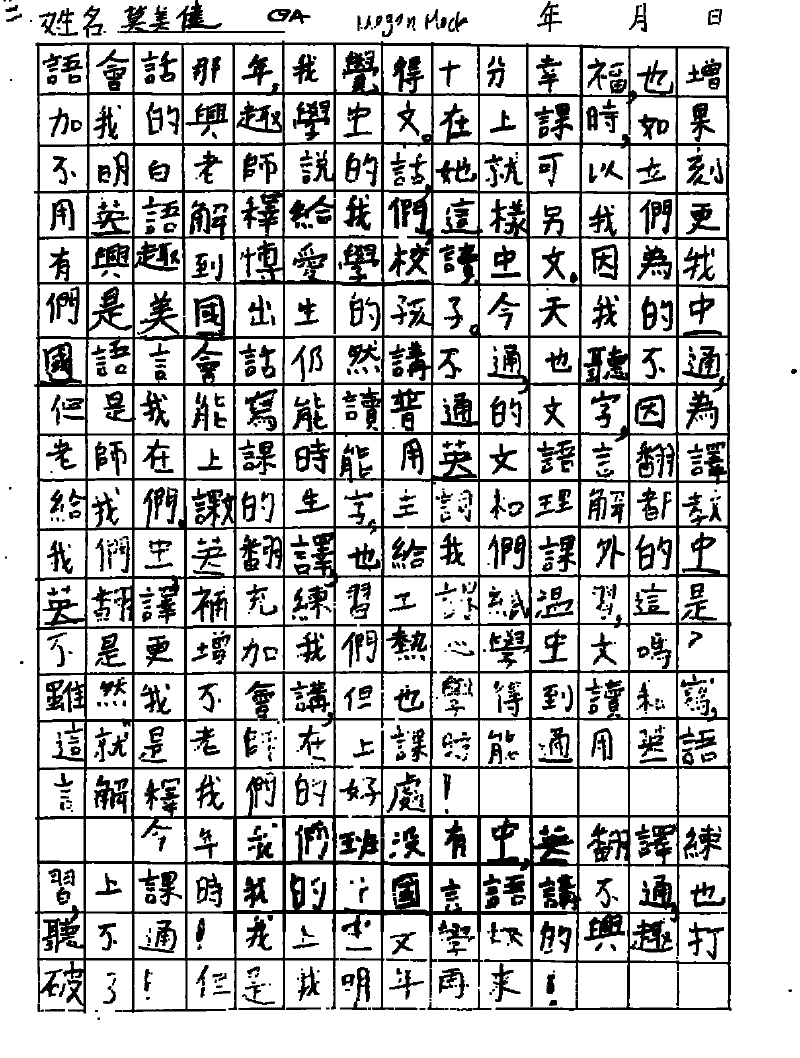 姓名 莫美佳 6A Megan Mock 年 月 日
語會話那年,我覺得十分幸福,也增
加我的興趣學中文。在上課時,如果
不明白老師說的話,她就可以立刻
用英語解釋給我們,這樣另我們更
有興趣到博愛學校讀中文。因為我
們是美國出生的孩子。今天我的中
國語言會話仍然講不通,也聽不通,
但是我能寫能讀普通的文字,因為
老師在上課時能用英文語言翻譯
給我們。課文的生字,主詞和理解都教
我們中英翻譯,也給我們課外的中
英翻譯,補充練習工課紙溫習,這是
不是更增加我們熱心學中文嗎?
雖然我不會講,但也學得到讀和寫,
這就是老師在上課時能通用英語
言解釋我們的好處!
今年我們班沒有中,英翻譯練
習,上課時我的中國言語講不通,也
聽不通!我上中文學校的興趣打
破了!但是我明年再來!